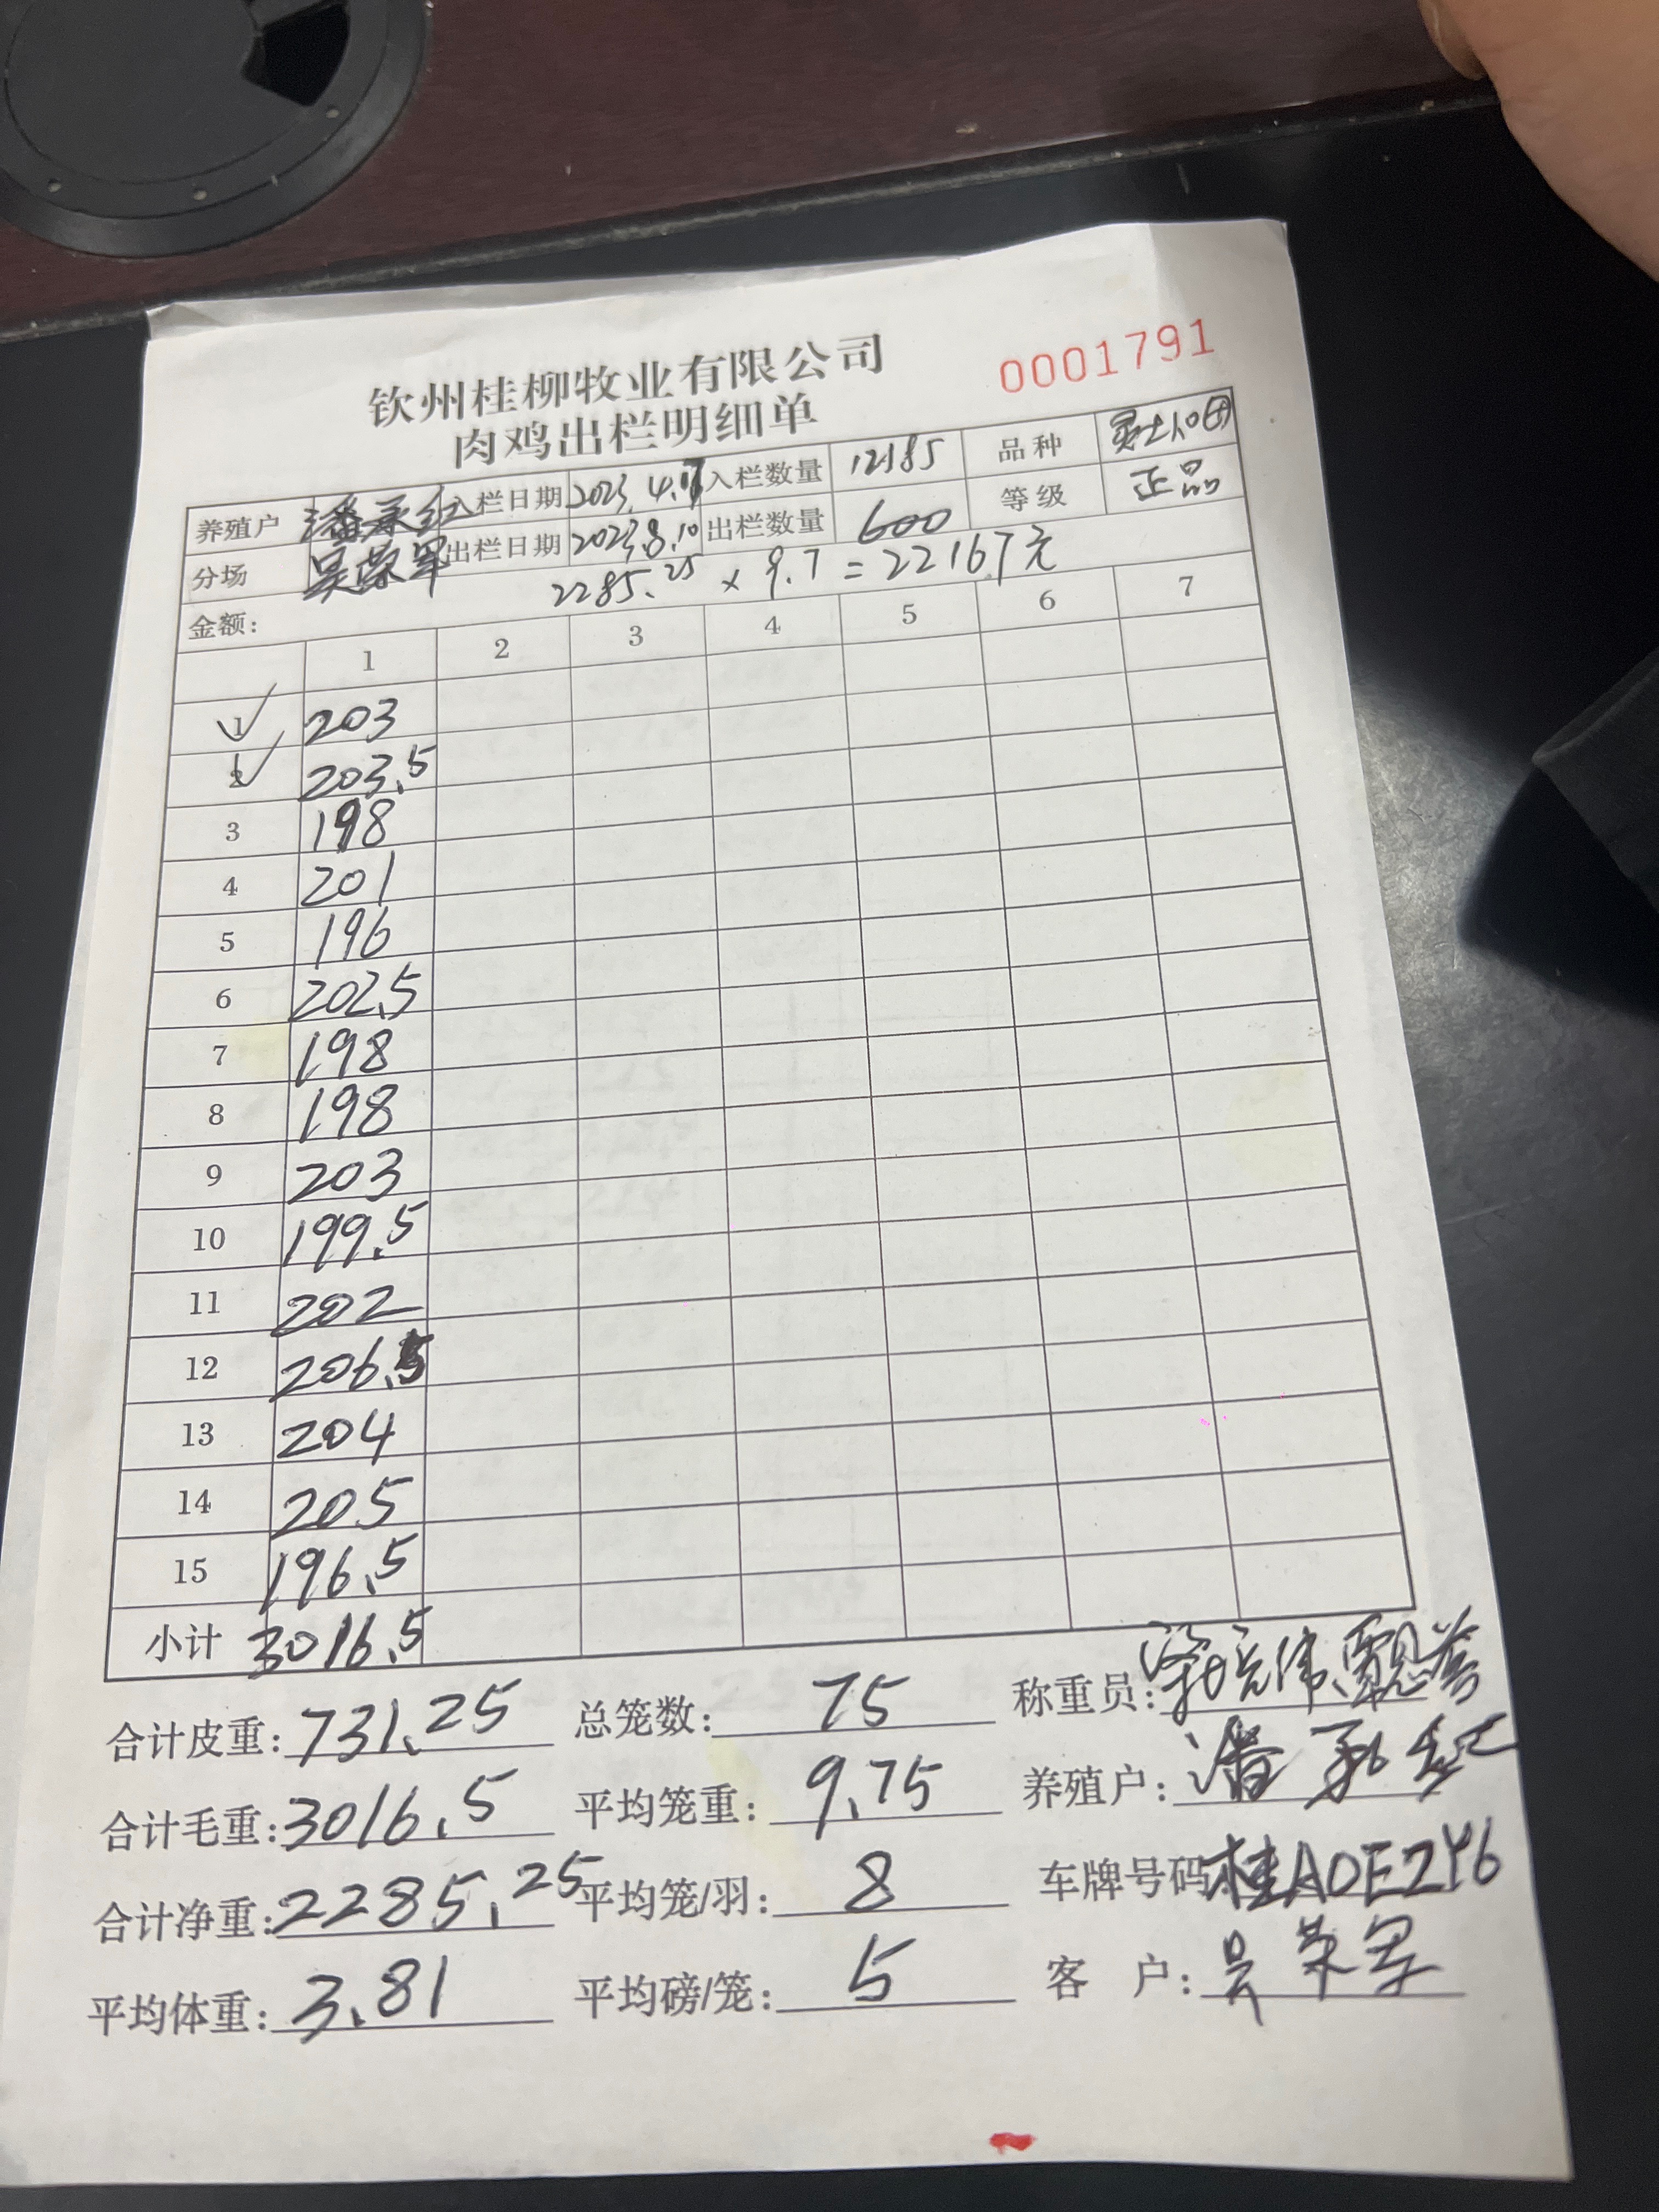 钦州桂柳牧业有限公司
0001791
肉鸡出栏明细单
养殖户 潘承红 入栏日期 2023.4.17 入栏数量 12185 品种
分场 吴荣军 出栏日期 2023.8.10 出栏数量 600 等级 正品
金额: 2285.25 × 9.7 = 22167元
1 2 3 4 5 6 7
1 203
2 203.5
3 198
4 201
5 196
6 202.5
7 198
8 198
9 203
10 199.5
11 202
12 206.5
13 204
14 205
15 196.5
小计 3016.5
合计皮重: 731.25 总笼数: 75 称重员:
合计毛重: 3016.5 平均笼重: 9.75 养殖户: 潘承红
合计净重: 2285.25 平均笼/羽: 8 车牌号码: 桂A0E2Y6
平均体重: 3.81 平均磅/笼: 5 客 户: 吴荣军